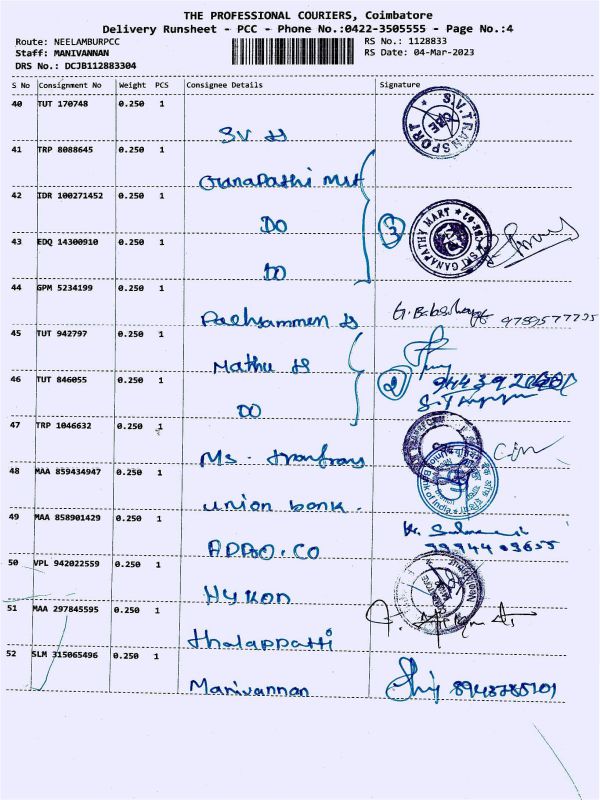 THE PROFESSIONAL COURIERS, Coimbatore
Delivery Runsheet - PCC - Phone No.:0422-3505555 - Page No.:4
Route: NEELAMBURPCC RS No.: 1128833
Staff: MANIVANNAN RS Date: 04-Mar-2023
DRS No.: DCJB112883304
S No Consignment No Weight PCS Consignee Details Signature
40 TUT 170748 0.250 1
S.V. TRANSPORT
SV
41 TRP 8088645 0.250 1
Ganapathi Mart
42 IDR 100271452 0.250 1
DO
3
SRI GANAPATHY MART
43 EDQ 14300910 0.250 1
DO
44 GPM 5234199 0.250 1
9789577735
45 TUT 942797 0.250 1
Mathu
46 TUT 846055 0.250 1
DO
2
47 TRP 1046632 0.250 1
Ms.
48 MAA 859434947 0.250 1
union bank.
Union Bank of India
49 MAA 858901429 0.250 1
50 VPL 942022559 0.250 1
Hykon
51 MAA 297845595 0.250 1
thalappatti
52 SLM 315065496 0.250 1
Manivannan